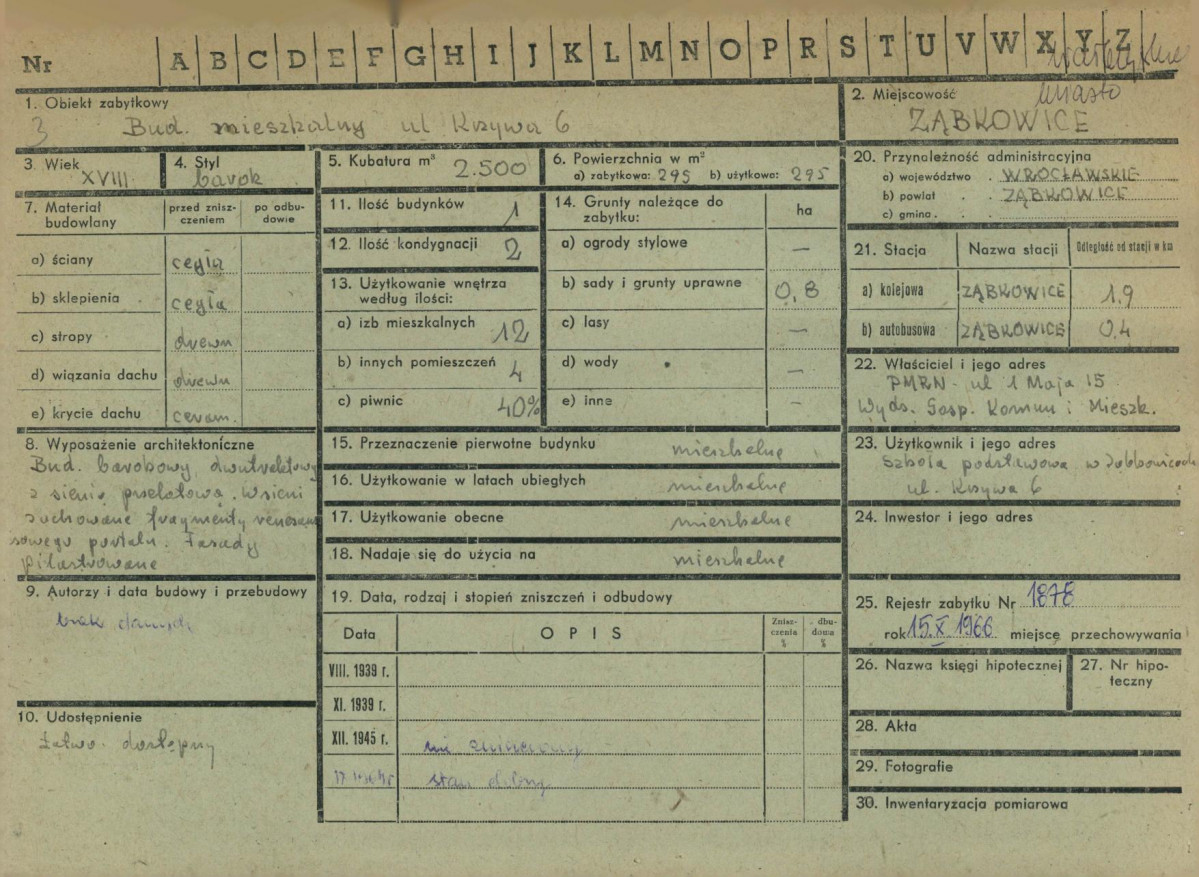 Nr A B C D E F G H I J K L M N O P R S T U V W X Y Z
miasto
1. Obiekt zabytkowy
3 Bud. mieszkalny ul Krzywa 6
2. Miejscowość
ZĄBKOWICE
3. Wiek
XVIII
4. Styl
barok
5. Kubatura m³ 2.500
6. Powierzchnia w m²
a) zabytkowa: 295 b) użytkowa: 295
7. Materiał budowlany
przed zniszczeniem
po odbudowie
a) ściany cegła
b) sklepienia cegła
c) stropy drewn
d) wiązania dachu drewn
e) krycie dachu ceram.
8. Wyposażenie architektoniczne
Bud. barokowy, dwutraktowy
z sienią przelotową. W sieni
zachowane fragmenty renesan
sowego portalu. Fasady
pilastrowane
9. Autorzy i data budowy i przebudowy
brak danych
10. Udostępnienie
Łatwo dostępny
11. Ilość budynków 1
12. Ilość kondygnacji 2
13. Użytkowanie wnętrza według ilości:
a) izb mieszkalnych 12
b) innych pomieszczeń 4
c) piwnic 40%
14. Grunty należące do zabytku:
ha
a) ogrody stylowe —
b) sady i grunty uprawne 0,8
c) lasy —
d) wody —
e) inne —
15. Przeznaczenie pierwotne budynku mieszkalne
16. Użytkowanie w latach ubiegłych mieszkalne
17. Użytkowanie obecne mieszkalne
18. Nadaje się do użycia na mieszkalne
19. Data, rodzaj i stopień zniszczeń i odbudowy
Data
OPIS
Zniszczenia %
dbudowa %
VIII. 1939 r.
XI. 1939 r.
XII. 1945 r. nie zniszczony
stan dobry
20. Przynależność administracyjna
a) województwo WROCŁAWSKIE
b) powiat ZĄBKOWICE
c) gmina
21. Stacja
Nazwa stacji
Odległość od stacji w km
a) kolejowa ZĄBKOWICE 1,9
b) autobusowa ZĄBKOWICE 0,4
22. Właściciel i jego adres
PMRN - ul 1 Maja 15
Wydz. Gosp. Komun i Mieszk.
23. Użytkownik i jego adres
Szkoła podstawowa w Ząbkowicach
ul. Krzywa 6
24. Inwestor i jego adres
25. Rejestr zabytku Nr 1878
rok 15.X.1966 miejsce przechowywania
26. Nazwa księgi hipotecznej
27. Nr hipoteczny
28. Akta
29. Fotografie
30. Inwentaryzacja pomiarowa